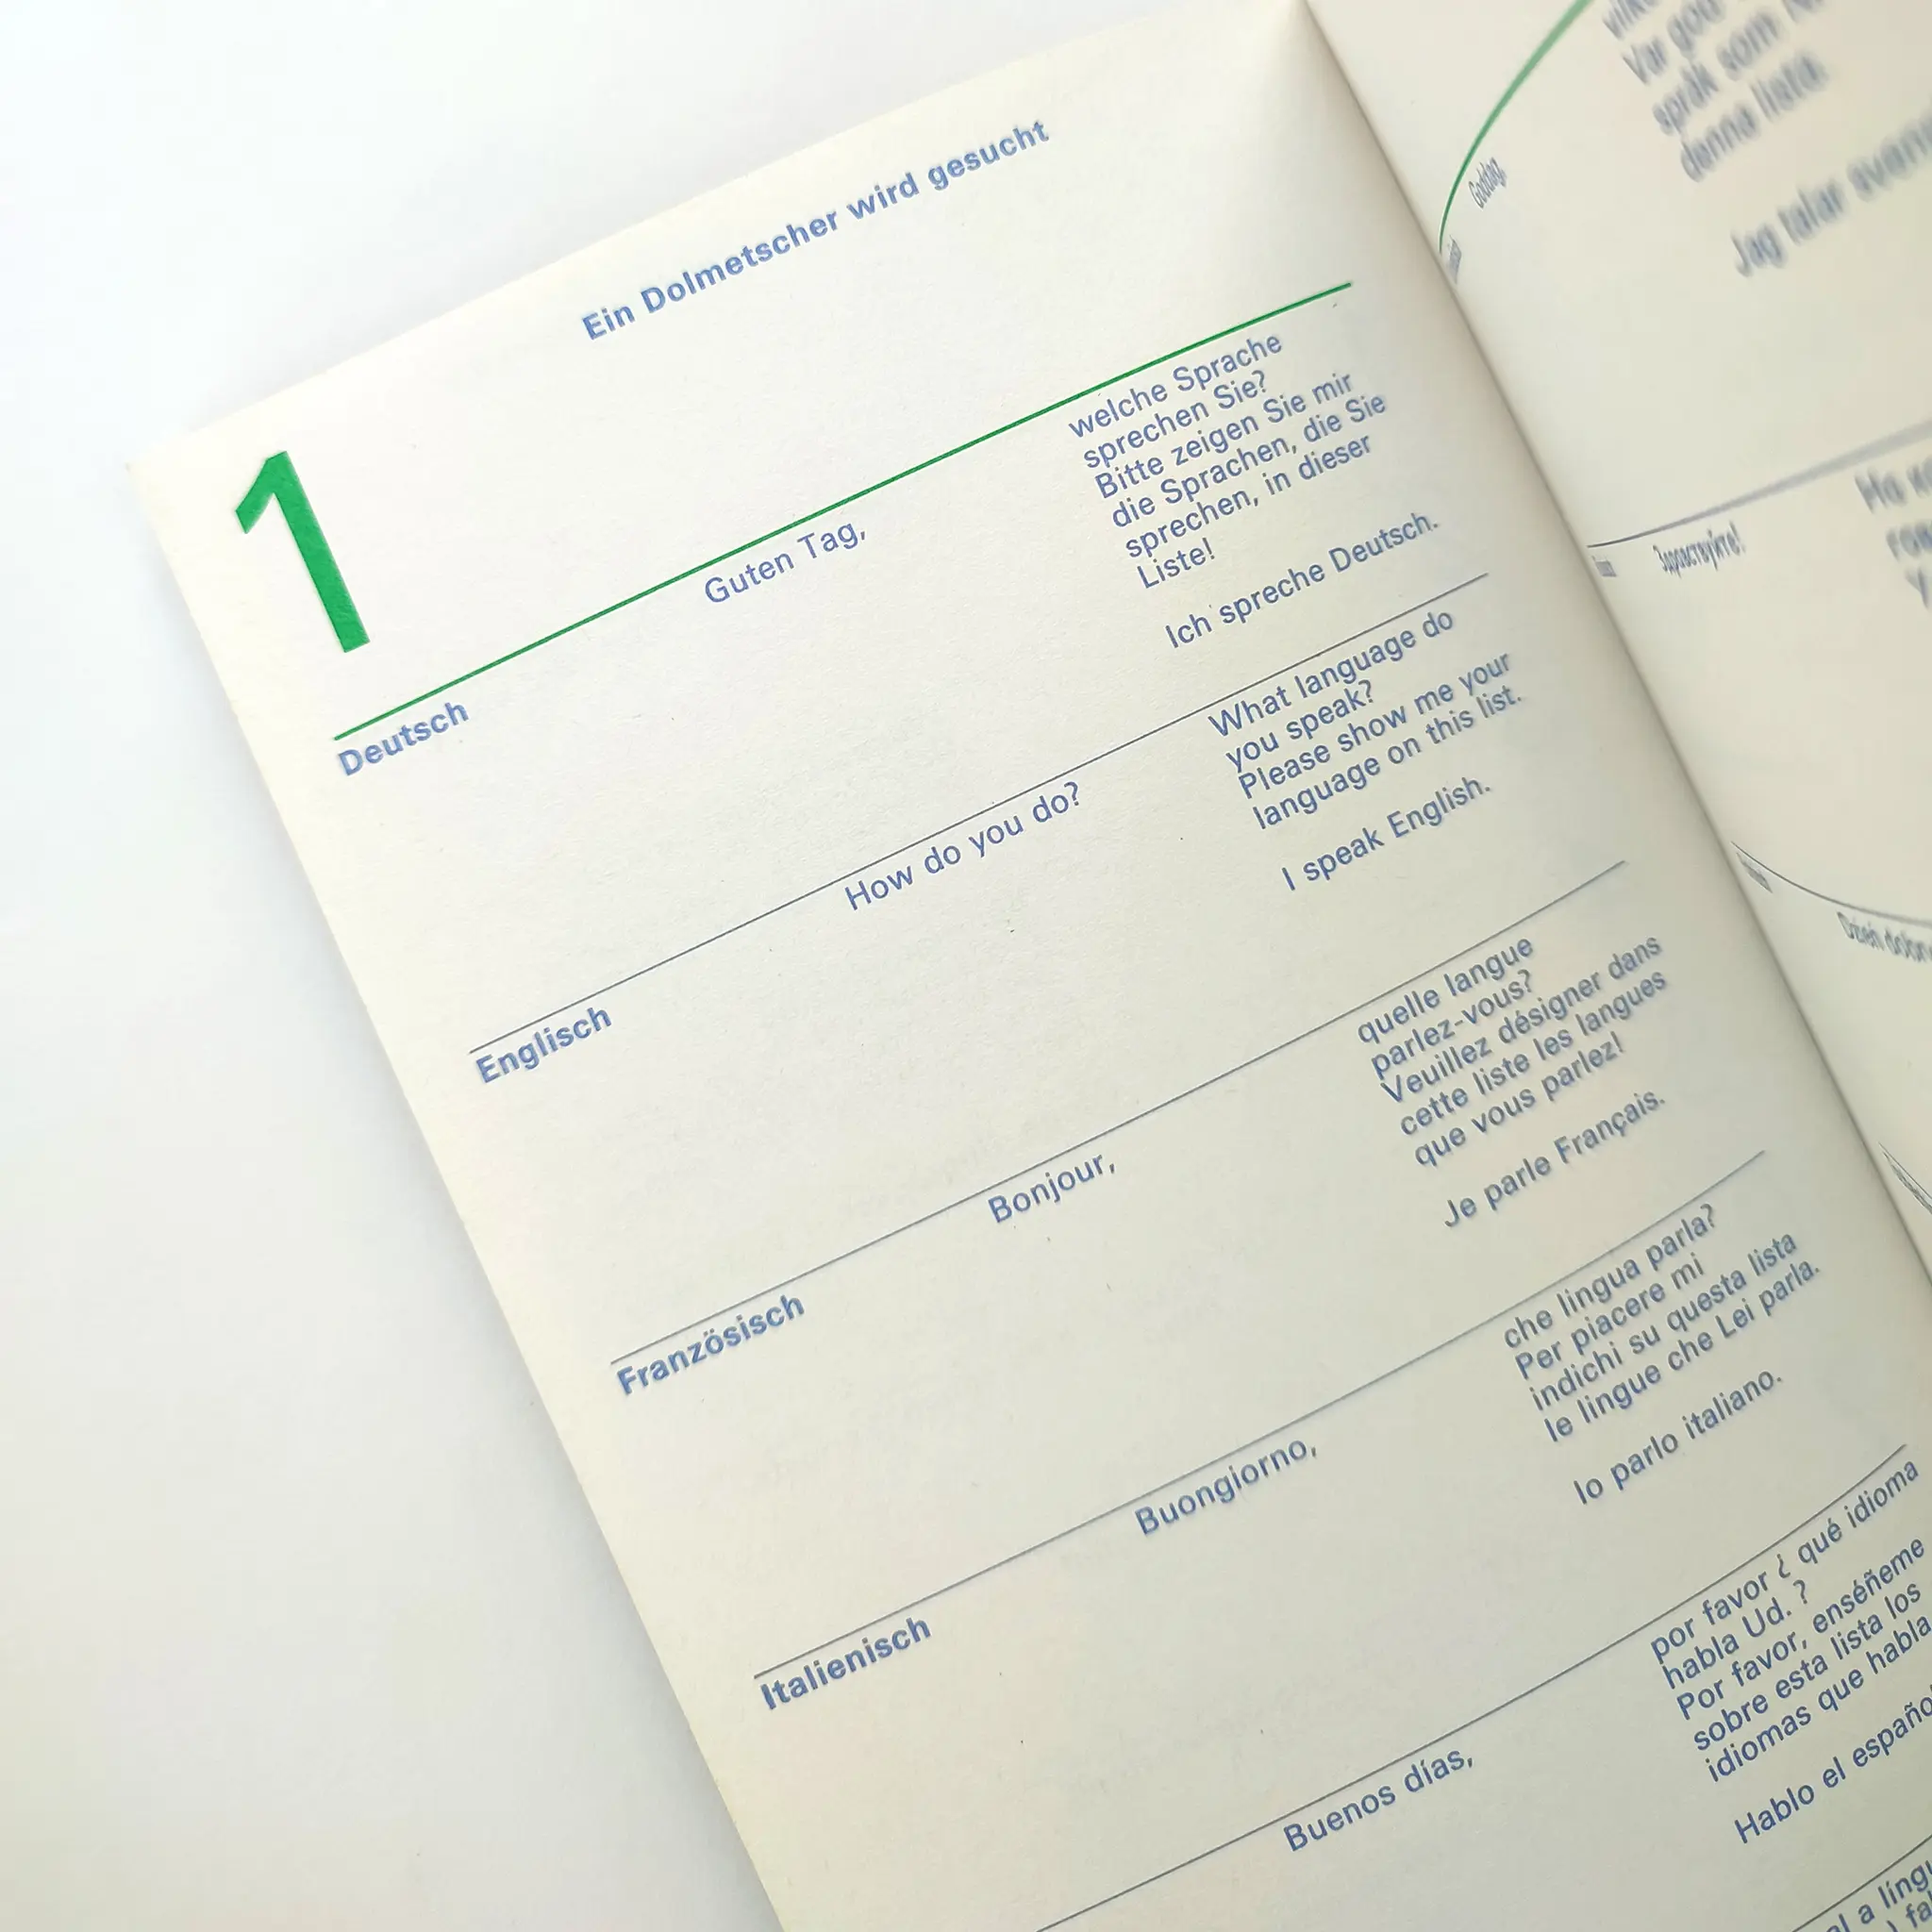 Ein Dolmetscher wird gesucht
1
Deutsch
Guten Tag,
welche Sprache
sprechen Sie?
Bitte zeigen Sie mir
die Sprachen, die Sie
sprechen, in dieser
Liste!
Ich spreche Deutsch.
Englisch
How do you do?
What language do
you speak?
Please show me your
language on this list.
I speak English.
Französisch
Bonjour,
quelle langue
parlez-vous?
Veuillez désigner dans
cette liste les langues
que vous parlez!
Je parle Français.
Italienisch
Buongiorno,
che lingua parla?
Per piacere mi
indichi su questa lista
le lingue che Lei parla.
Io parlo italiano.
Buenos días,
por favor ¿ qué idioma
habla Ud. ?
Por favor, enséñeme
sobre esta lista los
idiomas que habla
Hablo el
Goddag,
Var god
språk som
denna lista.
Jag talar
Здравствуйте!
Dzień